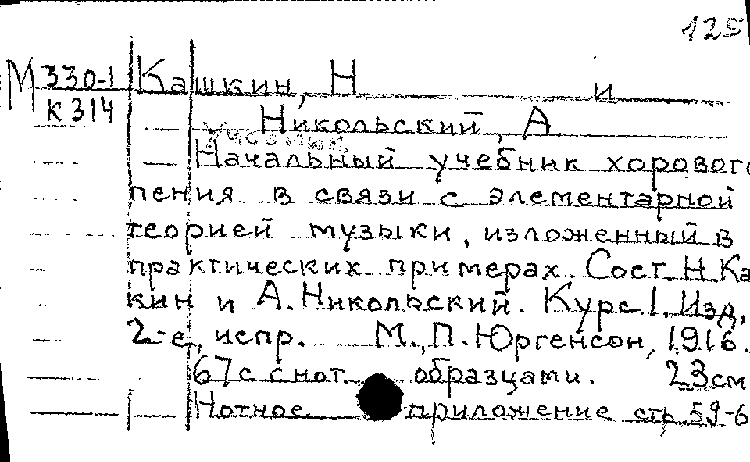 125
М 330-1 Кашкин, Н и
К 314
Никольский, А
Начальный учебник хорового
пения в связи с элементарной
теорией музыки, изложенный в
практических примерах. Сост. Н. Ка
кин и А. Никольский. Курс I. Изд.
2-е, испр. М., П. Юргенсон, 1916.
67 с с нот. образцами. 23 см
Нотное приложение стр. 59-6